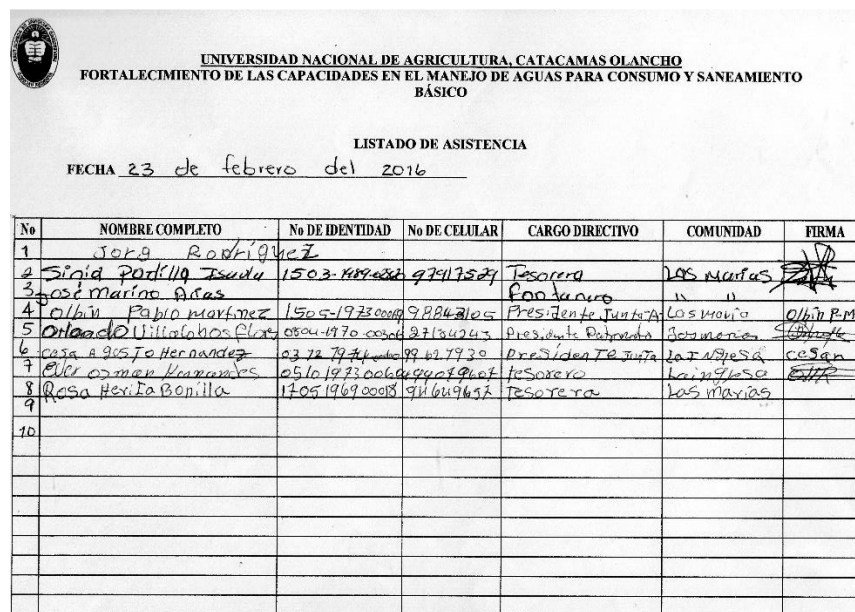 UNIVERSIDAD NACIONAL DE AGRICULTURA, CATACAMAS OLANCHO
FORTALECIMIENTO DE LAS CAPACIDADES EN EL MANEJO DE AGUAS PARA CONSUMO Y SANEAMIENTO
BÁSICO
LISTADO DE ASISTENCIA
FECHA 23 de febrero del 2016
No NOMBRE COMPLETO No DE IDENTIDAD No DE CELULAR CARGO DIRECTIVO COMUNIDAD FIRMA
1 Jorg Rodríguez
2 Sinia Padilla 97917529 Tesorera Las Marias
3 José Marino Arias Fontanero " "
4 Olbin Pablo martinez 98843105 Presidente Junta A Las Maria Olbin P.M
5 Orlando Villalobos Flores 27134243 Presidente Patronato
6 cesa Agusto Hernandez 99627930 PresidenTe Junta La Inglesa cesar
7 Ever osman Hernandes tesorero La inglesa
8 Rosa HeriTa Bonilla 1705196900018 Tesorera Las marias
9
10